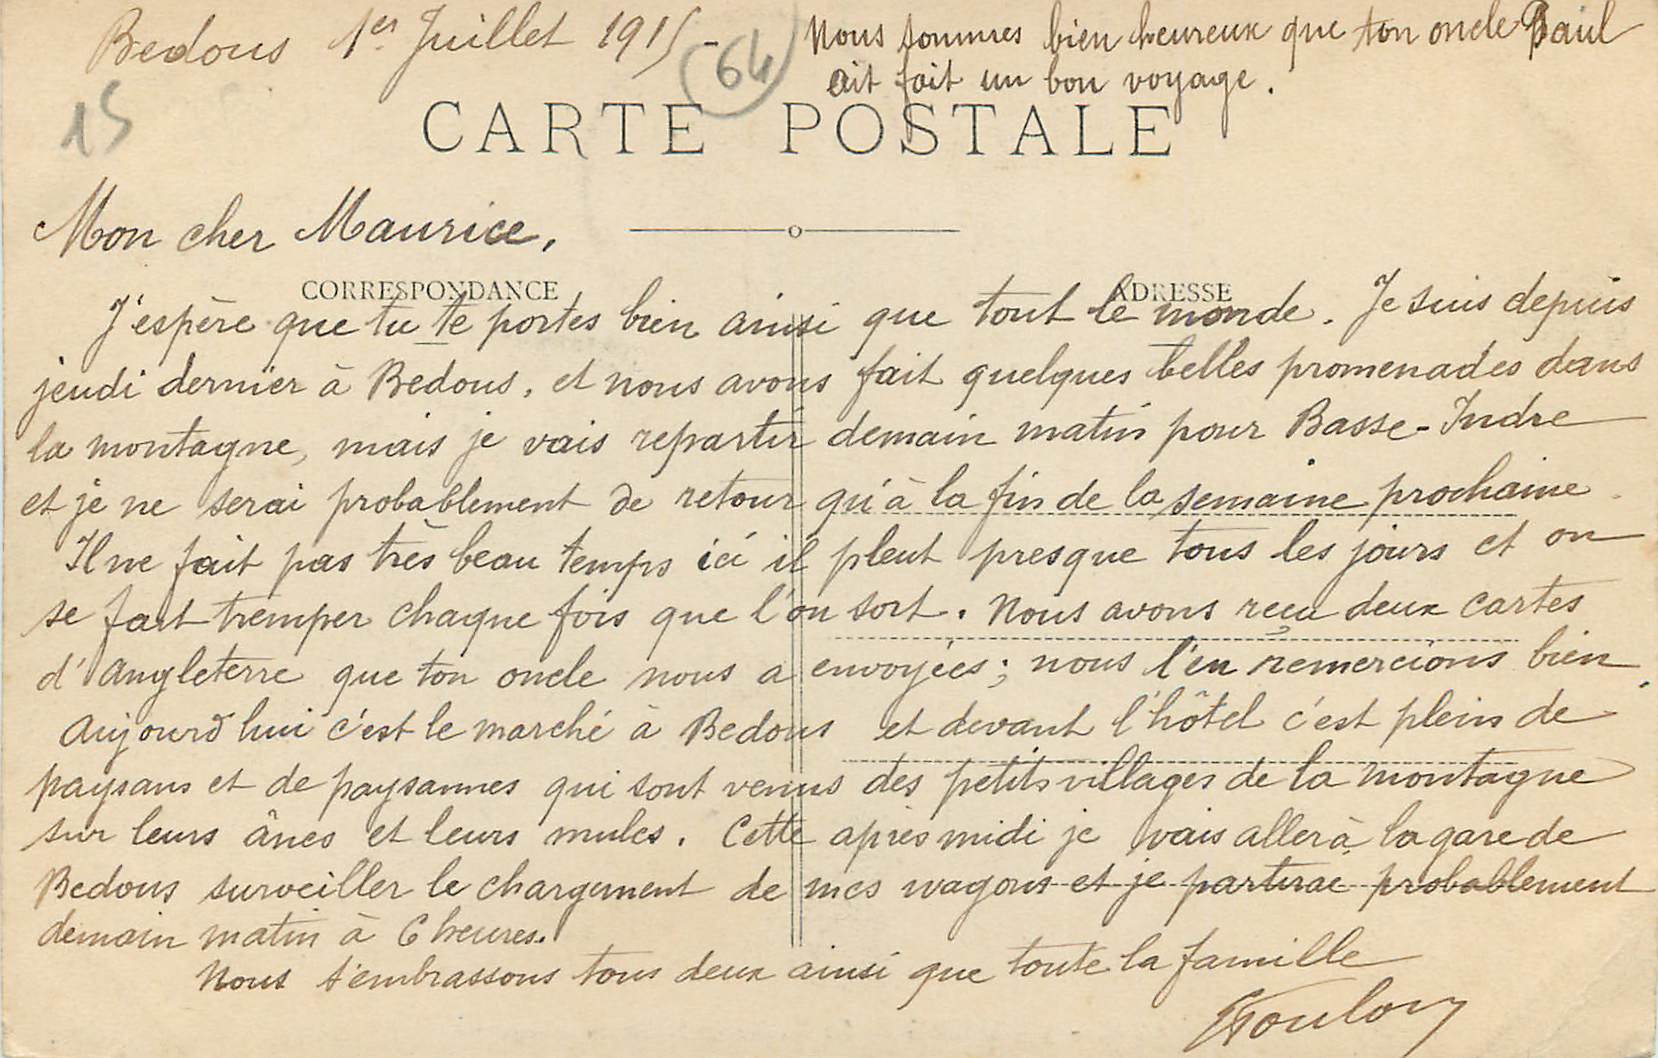 Bedous 1er Juillet 1915 -
64
Nous sommes bien heureux que ton oncle Paul
ait fait un bon voyage.
15
CARTE POSTALE
Mon cher Maurice,
CORRESPONDANCE
ADRESSE
J'espère que tu te portes bien ainsi que tout le monde. Je suis depuis
jeudi dernier à Bedous, et nous avons fait quelques belles promenades dans
la montagne, mais je vais repartir demain matin pour Basse-Indre
et je ne serai probablement de retour qu'à la fin de la semaine prochaine.
Il ne fait pas très beau temps ici il pleut presque tous les jours et on
se fait tremper chaque fois que l'on sort. Nous avons reçu deux cartes
d'Angleterre que ton oncle nous a envoyées; nous l'en remercions bien.
Aujourd'hui c'est le marché à Bedous et devant l'hôtel c'est plein de
paysans et de paysannes qui sont venus des petits villages de la montagne
sur leurs ânes et leurs mules. Cette après midi je vais aller à la gare de
Bedous surveiller le chargement de mes wagons et je partirai probablement
demain matin à 6 heures.
Nous t'embrassons tous deux ainsi que toute la famille